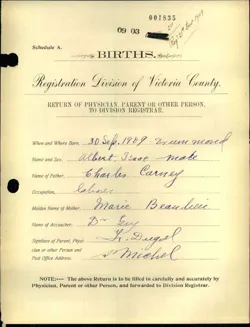 001835
09 03
Schedule A.
BIRTHS.
Registration Division of Victoria County.
RETURN OF PHYSICIAN, PARENT OR OTHER PERSON,
TO DIVISION REGISTRAR.
When and Where Born, 30 Sep. 1909 Drummond
Name and Sex, Albert Isaac Male
Name of Father, Charles Carney
Occupation, Laborer
Maiden Name of Mother, Marie Beaulieu
Name of Accoucher, Dr Guy
Signature of Parent, Physi-
cian or other Person and
Post Office Address,
St Michel
NOTE:— The above Return is to be filled carefully and accurately by
Physician, Parent or other Person, and forwarded to Division Registrar.